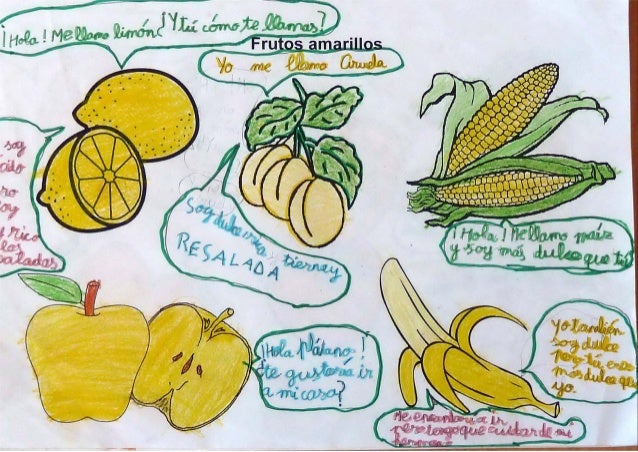 ¡Hola! Me llamo limón ¿Y tú cómo te llamas?
Frutos amarillos
Yo me llamo Ciruela
soy
cito
ro
soy
y rico
las
saladas
Soy dulce rica tierna y
RESALADA
¡Hola! Me llamo maíz
y soy más dulce que tú
¡Hola plátano!
te gustaría ir
a mi casa?
yo también
soy dulce
pero tú, eres
más dulce que
yo.
Me encantaría ir
pero tengo que cuidar de mi
hermano